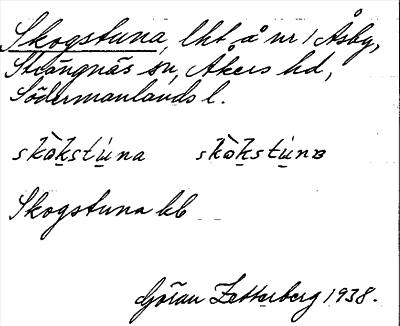 Skogstuna, lht å nr 1 Åsby,
Strängnäs sn, Åkers hd,
Södermanlands l.
skòkstúna skòkstúna
Skogstuna kb
Göran Zetterberg 1938.